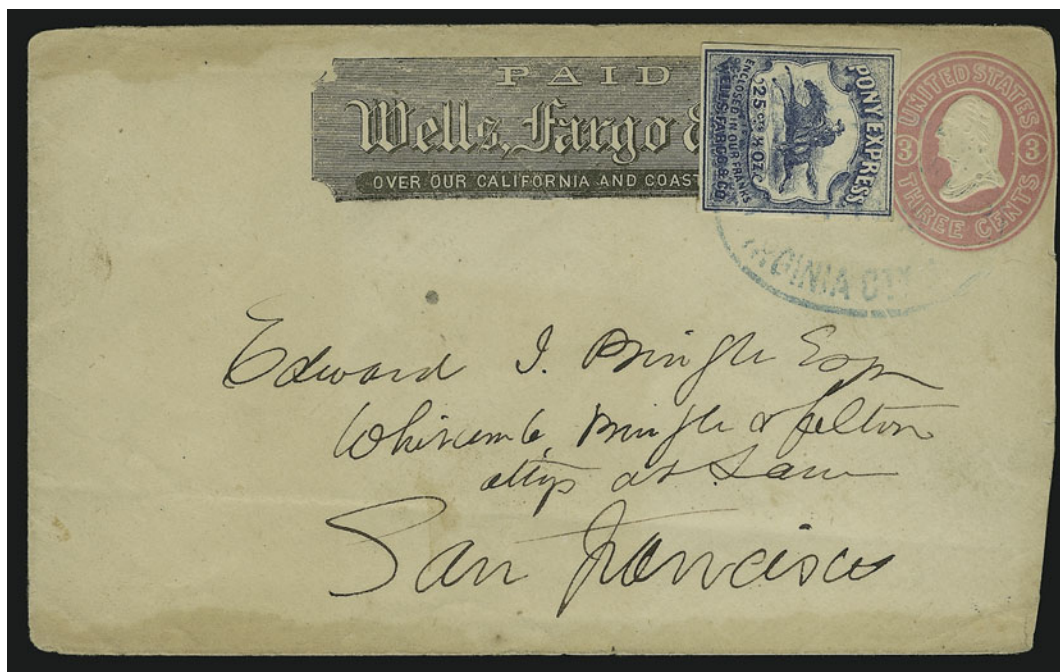 PAID
Wells, Fargo &
OVER OUR CALIFORNIA AND COAST
PONY EXPRESS
25 CTS ½ OZ
ENCLOSED IN OUR FRANKS
WELLS, FARGO & CO.
UNITED STATES
3 3
THREE CENTS
VIRGINIA CITY
Edward J. Pringle Esqr
Whitcomb, Pringle & Felton
attys at Law
San Francisco